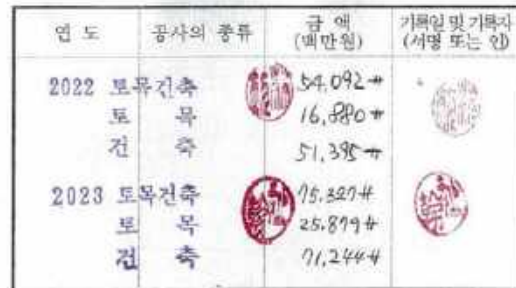 연 도 공사의 종류 금 액 (백만원) 기록일 및 기록자 (서명 또는 인)
2022 토목건축 54,092#
토 목 16,880#
건 축 51,395#
2023 토목건축 75.327#
토 목 25.879#
건 축 71,244#